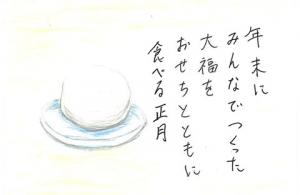 年末に
みんなでつくった
大福を
おせちとともに
食べる正月